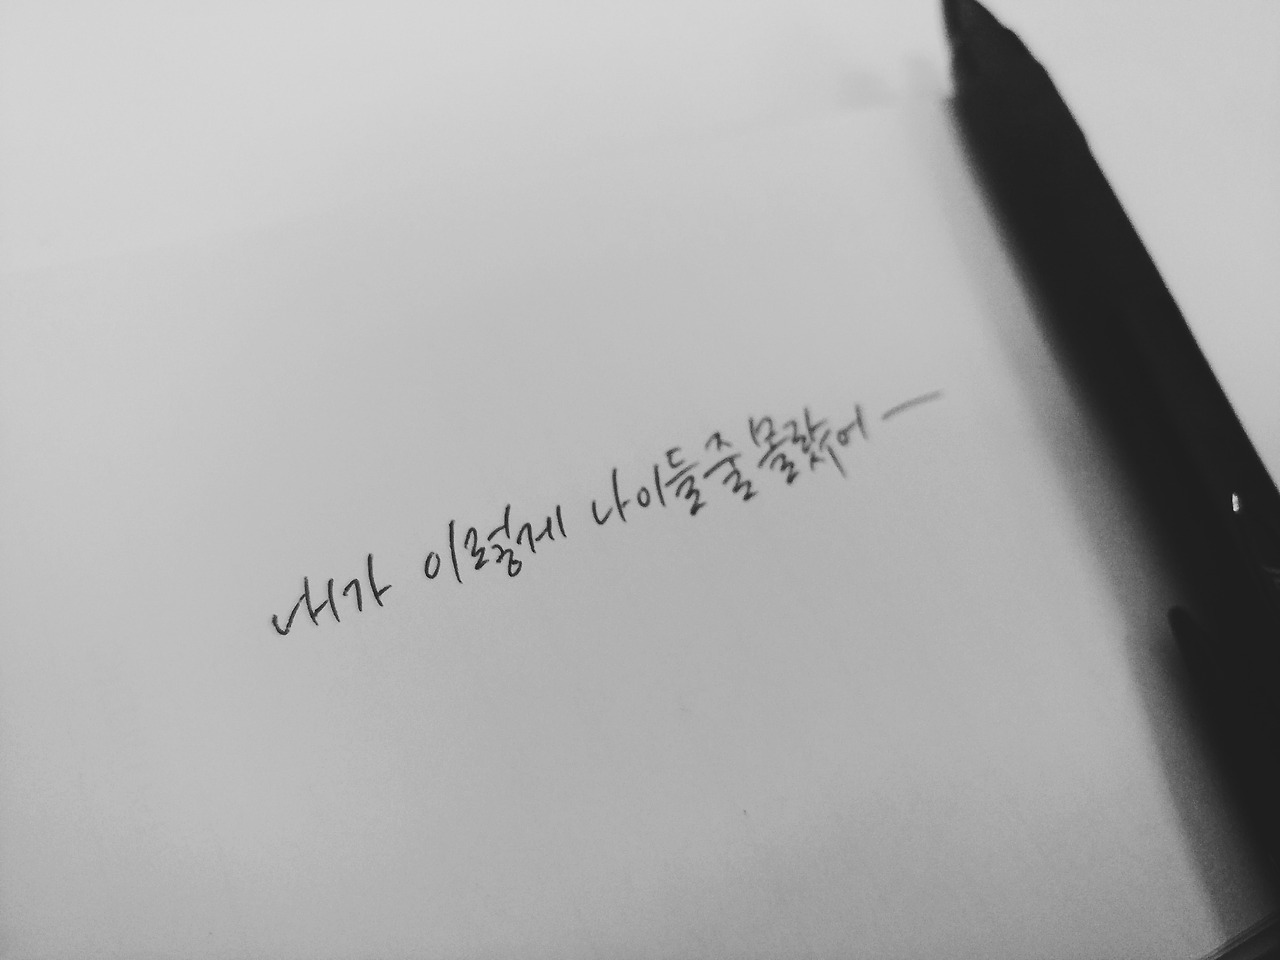 내가 이렇게 나이들줄 몰랐어 —